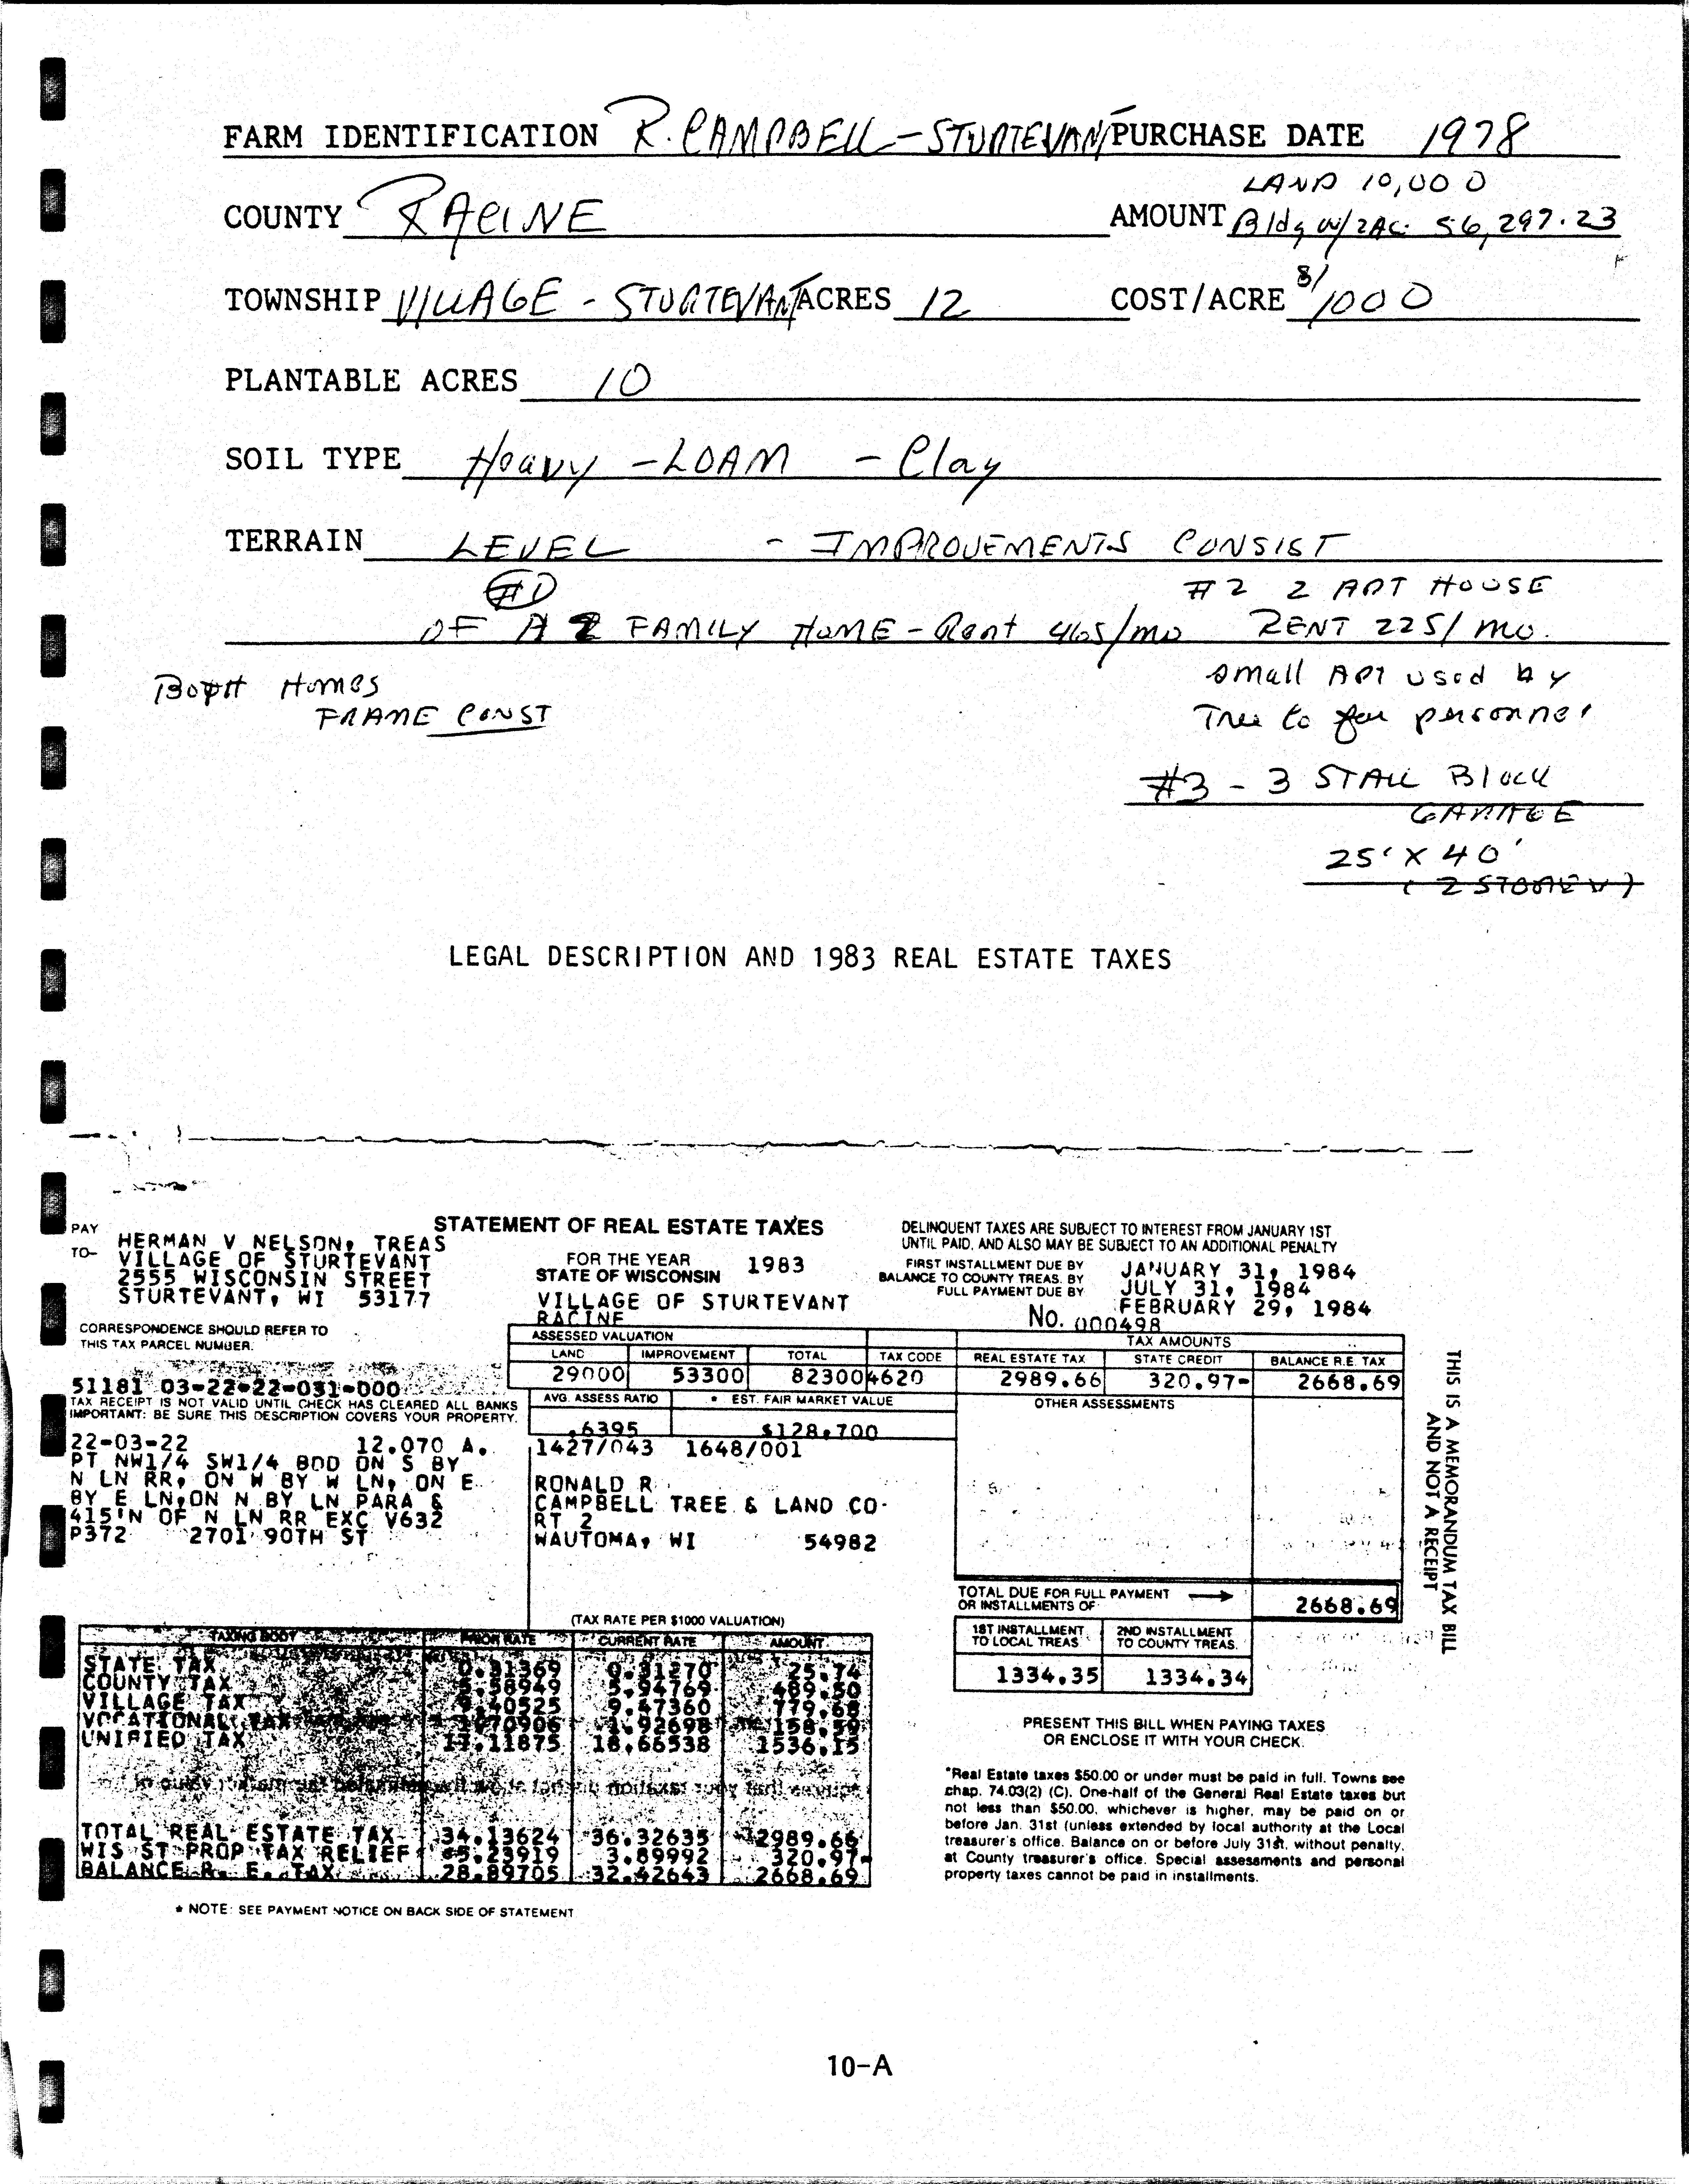 FARM IDENTIFICATION R. CAMPBELL - STURTEVANT PURCHASE DATE 1978
LAND 10,000
COUNTY RACINE AMOUNT Bldg w/2AC. 56,297.23
TOWNSHIP VILLAGE - STURTEVANT ACRES 12 COST/ACRE 1000
PLANTABLE ACRES 10
SOIL TYPE Heavy - LOAM - Clay
TERRAIN LEVEL - IMPROVEMENTS CONSIST
#1 #2 2 APT HOUSE
OF A 2 FAMILY HOME - Rent 465/mo RENT 225/mo.
BOTH HOMES
FRAME CONST
small APT used by
Tree to personnel
#3 - 3 STALL Block
GARAGE
25' X 40'
(2 STOREY)
LEGAL DESCRIPTION AND 1983 REAL ESTATE TAXES
PAY
TO-
HERMAN V NELSON, TREAS
VILLAGE OF STURTEVANT
2555 WISCONSIN STREET
STURTEVANT, WI 53177
STATEMENT OF REAL ESTATE TAXES
FOR THE YEAR 1983
STATE OF WISCONSIN
VILLAGE OF STURTEVANT
RACINE
DELINQUENT TAXES ARE SUBJECT TO INTEREST FROM JANUARY 1ST
UNTIL PAID, AND ALSO MAY BE SUBJECT TO AN ADDITIONAL PENALTY
FIRST INSTALLMENT DUE BY JANUARY 31, 1984
BALANCE TO COUNTY TREAS. BY JULY 31, 1984
FULL PAYMENT DUE BY FEBRUARY 29, 1984
No. 000498
CORRESPONDENCE SHOULD REFER TO
THIS TAX PARCEL NUMBER.
51181 03-22-22-031-000
TAX RECEIPT IS NOT VALID UNTIL CHECK HAS CLEARED ALL BANKS
IMPORTANT: BE SURE THIS DESCRIPTION COVERS YOUR PROPERTY.
22-03-22 12.070 A.
PT NW1/4 SW1/4 BDD ON S BY
N LN RR, ON W BY W LN, ON E
BY E LN, ON N BY LN PARA &
415'N OF N LN RR EXC V632
P372 2701 90TH ST
ASSESSED VALUATION
LAND IMPROVEMENT TOTAL TAX CODE
29000 53300 82300 4620
AVG. ASSESS RATIO * EST. FAIR MARKET VALUE
.6395 $128,700
1427/043 1648/001
RONALD R
CAMPBELL TREE & LAND CO
RT 2
WAUTOMA, WI 54982
TAX AMOUNTS
REAL ESTATE TAX STATE CREDIT BALANCE R.E. TAX
2989.66 320.97- 2668.69
OTHER ASSESSMENTS
TOTAL DUE FOR FULL PAYMENT
OR INSTALLMENTS OF 2668.69
1ST INSTALLMENT TO LOCAL TREAS. 2ND INSTALLMENT TO COUNTY TREAS.
1334.35 1334.34
THIS IS A MEMORANDUM TAX BILL
AND NOT A RECEIPT
(TAX RATE PER $1000 VALUATION)
TAXING BODY PRIOR RATE CURRENT RATE AMOUNT
STATE TAX 0.31369 0.31270 25.74
COUNTY TAX 5.58949 5.94769 489.50
VILLAGE TAX 9.40525 9.47360 779.68
VOCATIONAL TAX 1.70906 1.92698 158.59
UNIFIED TAX 17.11875 18.66538 1536.15
TOTAL REAL ESTATE TAX 34.13624 36.32635 2989.66
WIS ST PROP TAX RELIEF 5.23919 3.89992 320.97-
BALANCE R. E. TAX 28.89705 32.42643 2668.69
* NOTE: SEE PAYMENT NOTICE ON BACK SIDE OF STATEMENT
PRESENT THIS BILL WHEN PAYING TAXES
OR ENCLOSE IT WITH YOUR CHECK.
*Real Estate taxes $50.00 or under must be paid in full. Towns see
chap. 74.03(2) (C). One-half of the General Real Estate taxes but
not less than $50.00, whichever is higher, may be paid on or
before Jan. 31st (unless extended by local authority at the Local
treasurer's office. Balance on or before July 31st, without penalty,
at County treasurer's office. Special assessments and personal
property taxes cannot be paid in installments.
10-A